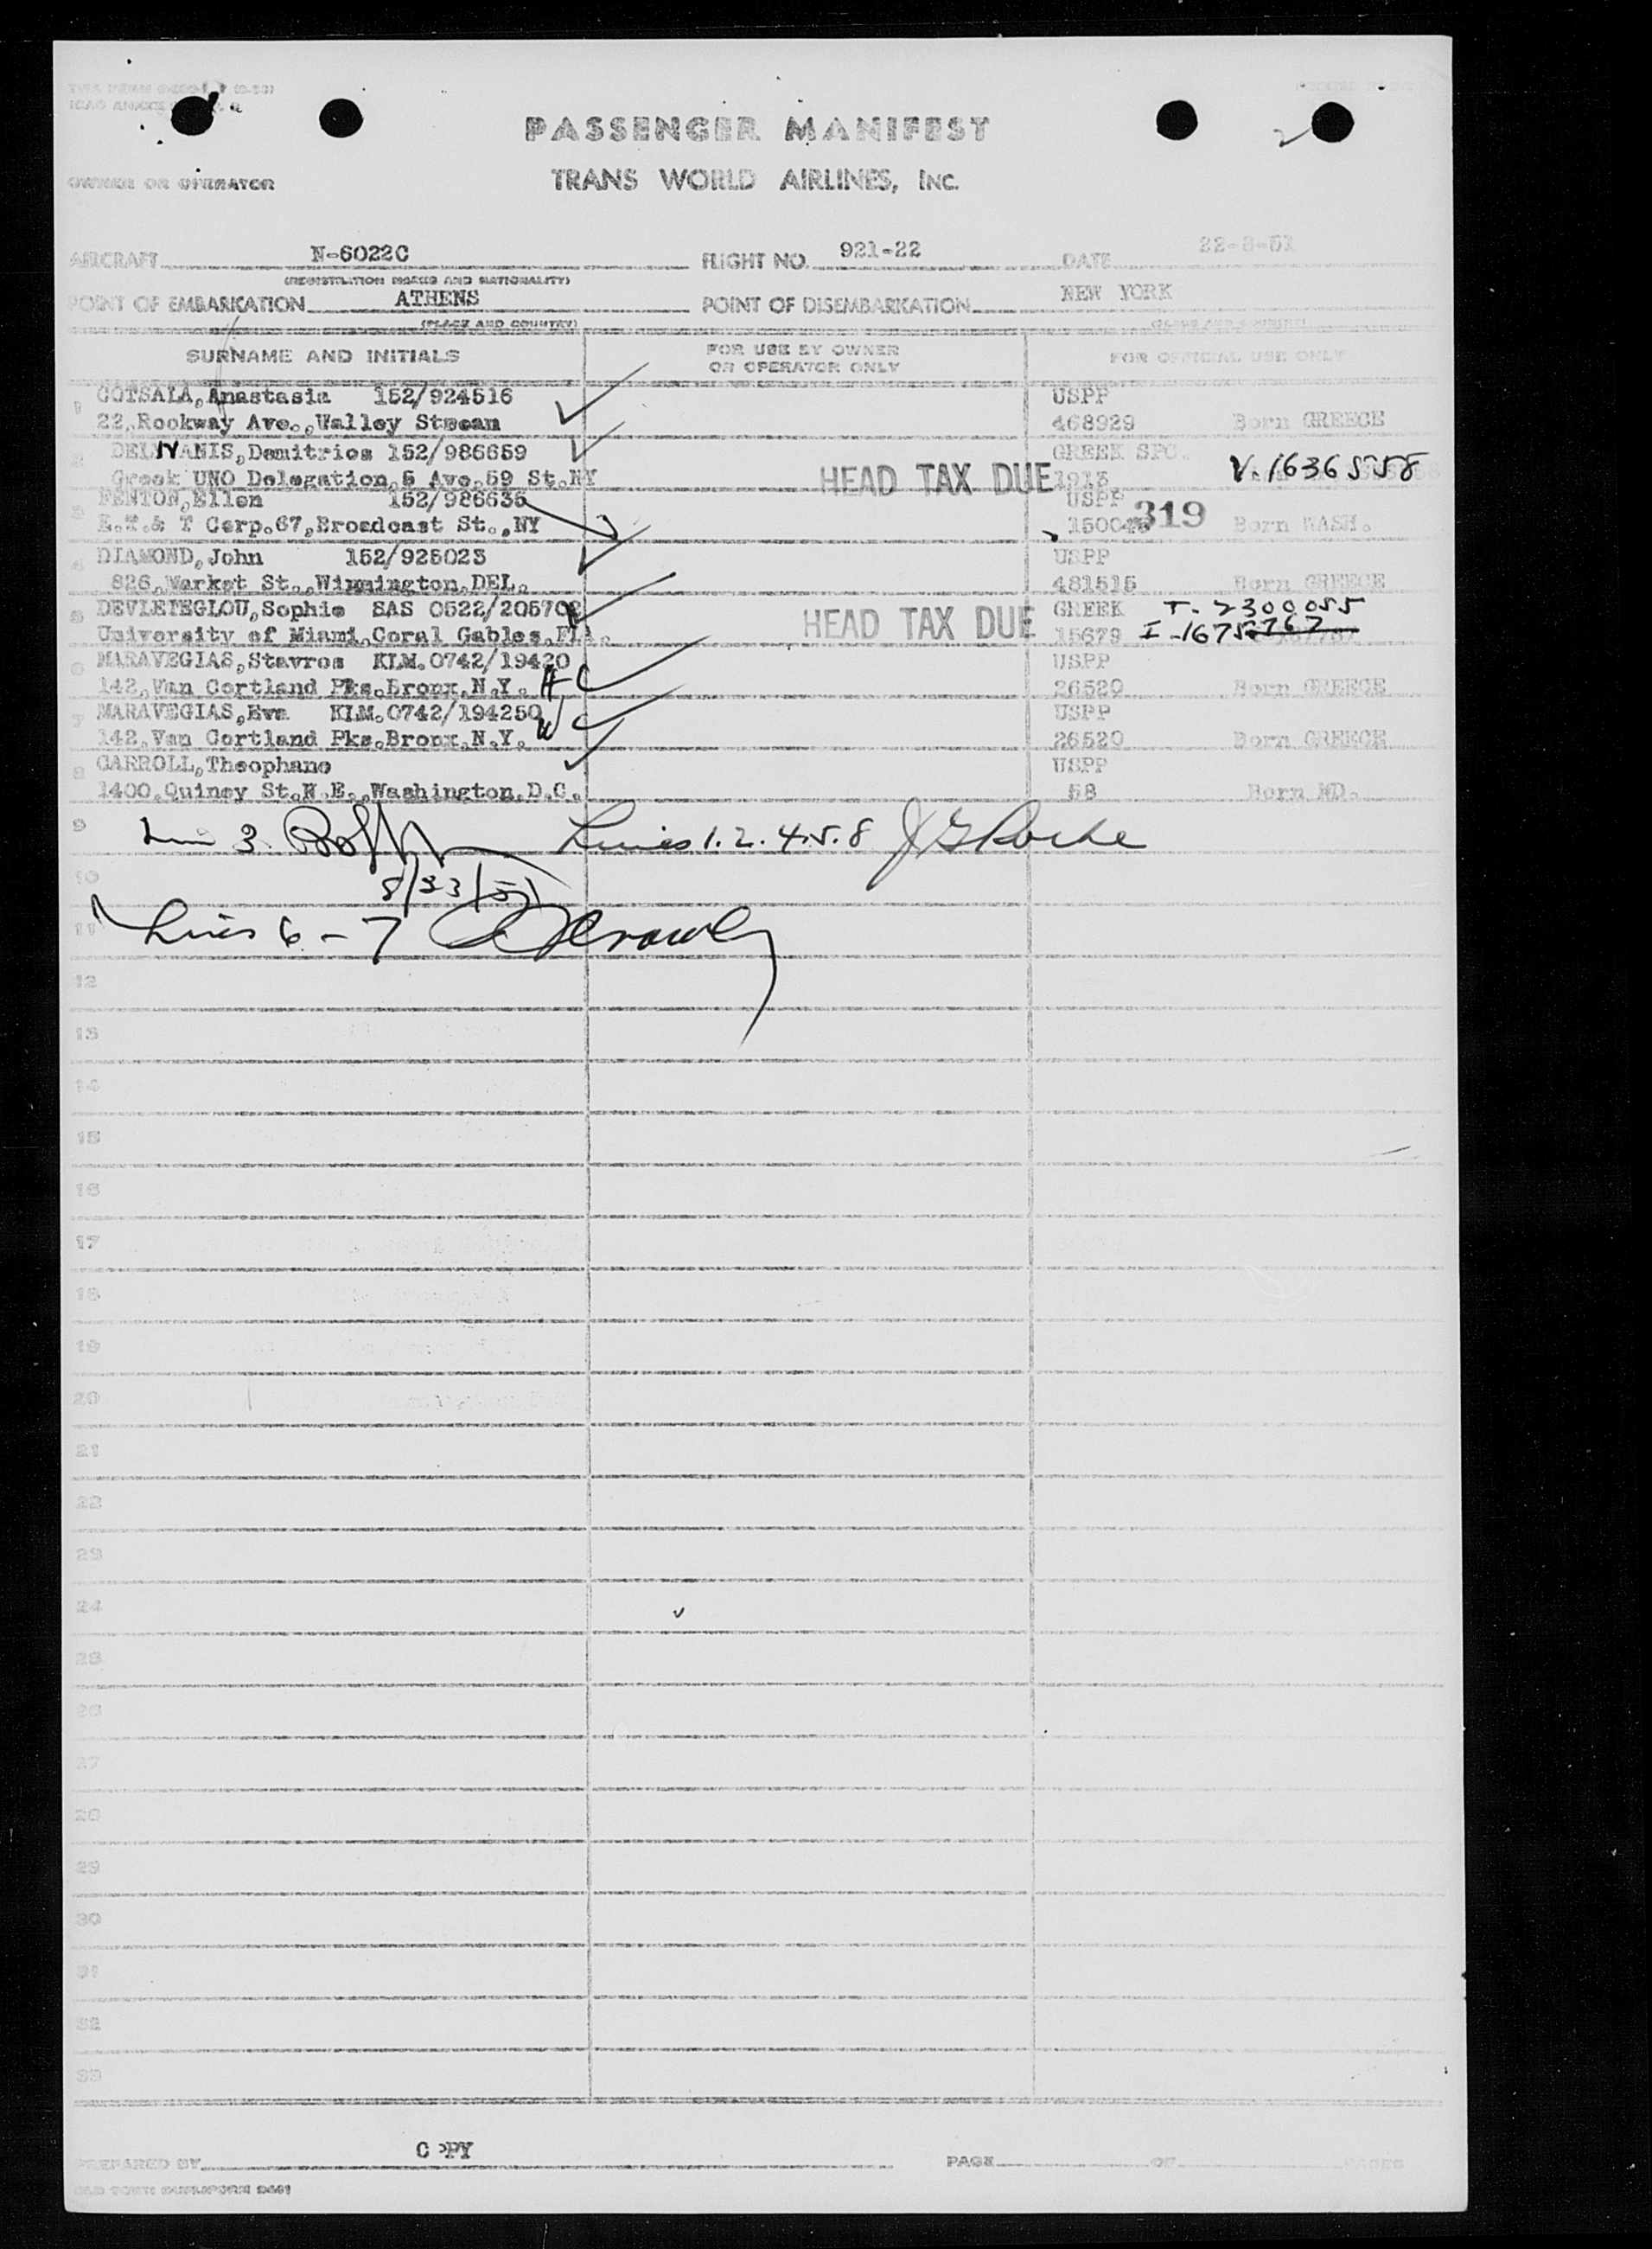 PASSENGER MANIFEST
OWNER OR OPERATOR TRANS WORLD AIRLINES, INC.
AIRCRAFT N-6022C FLIGHT NO. 921-22 DATE 22-8-51
(REGISTRATION MARKS AND NATIONALITY)
POINT OF EMBARKATION ATHENS POINT OF DISEMBARKATION NEW YORK
(PLACE AND COUNTRY)
SURNAME AND INITIALS FOR USE BY OWNER OR OPERATOR ONLY FOR OFFICIAL USE ONLY
1 COTSALA, Anastasia 152/924516 USPP
22, Rockway Ave., Walley Stream 468929 Born GREECE
2 DELIVANIS, Demitrios 152/986659 GREEK SPC.
Greek UNO Delegation, 5 Ave. 59 St. NY HEAD TAX DUE 1913 V-1636558
3 FENTON, Ellen 152/986635 USPP 319
E.T.& T Corp. 67, Broadcast St., NY Born WASH.
4 DIAMOND, John 152/925023 USPP
826, Market St., Winmington, DEL. 481515 Born GREECE
5 DEVLETEGLOU, Sophie SAS 0522/205702 HEAD TAX DUE GREEK T-2300055
University of Miami, Coral Gables, FLA. 15679 I-1675
6 MARAVEGIAS, Stavros KLM. 0742/19420 USPP
142, Van Cortland Pks. Bronx, N.Y. H 26520 Born GREECE
7 MARAVEGIAS, Eva KLM. 0742/194250 W USPP
142, Van Cortland Pks. Bronx, N.Y. 26520 Born GREECE
8 CARROLL, Theophano USPP
1400, Quincy St. N.E., Washington, D.C. 58 Born MD.
9 Line 3 Lines 1.2.4.5.8 J G Roche
10 8/23/51
11 Lines 6-7
12
13
14
15
16
17
18
19
20
21
22
23
24
25
26
27
28
29
30
31
32
33
PREPARED BY COPY PAGE OF PAGES